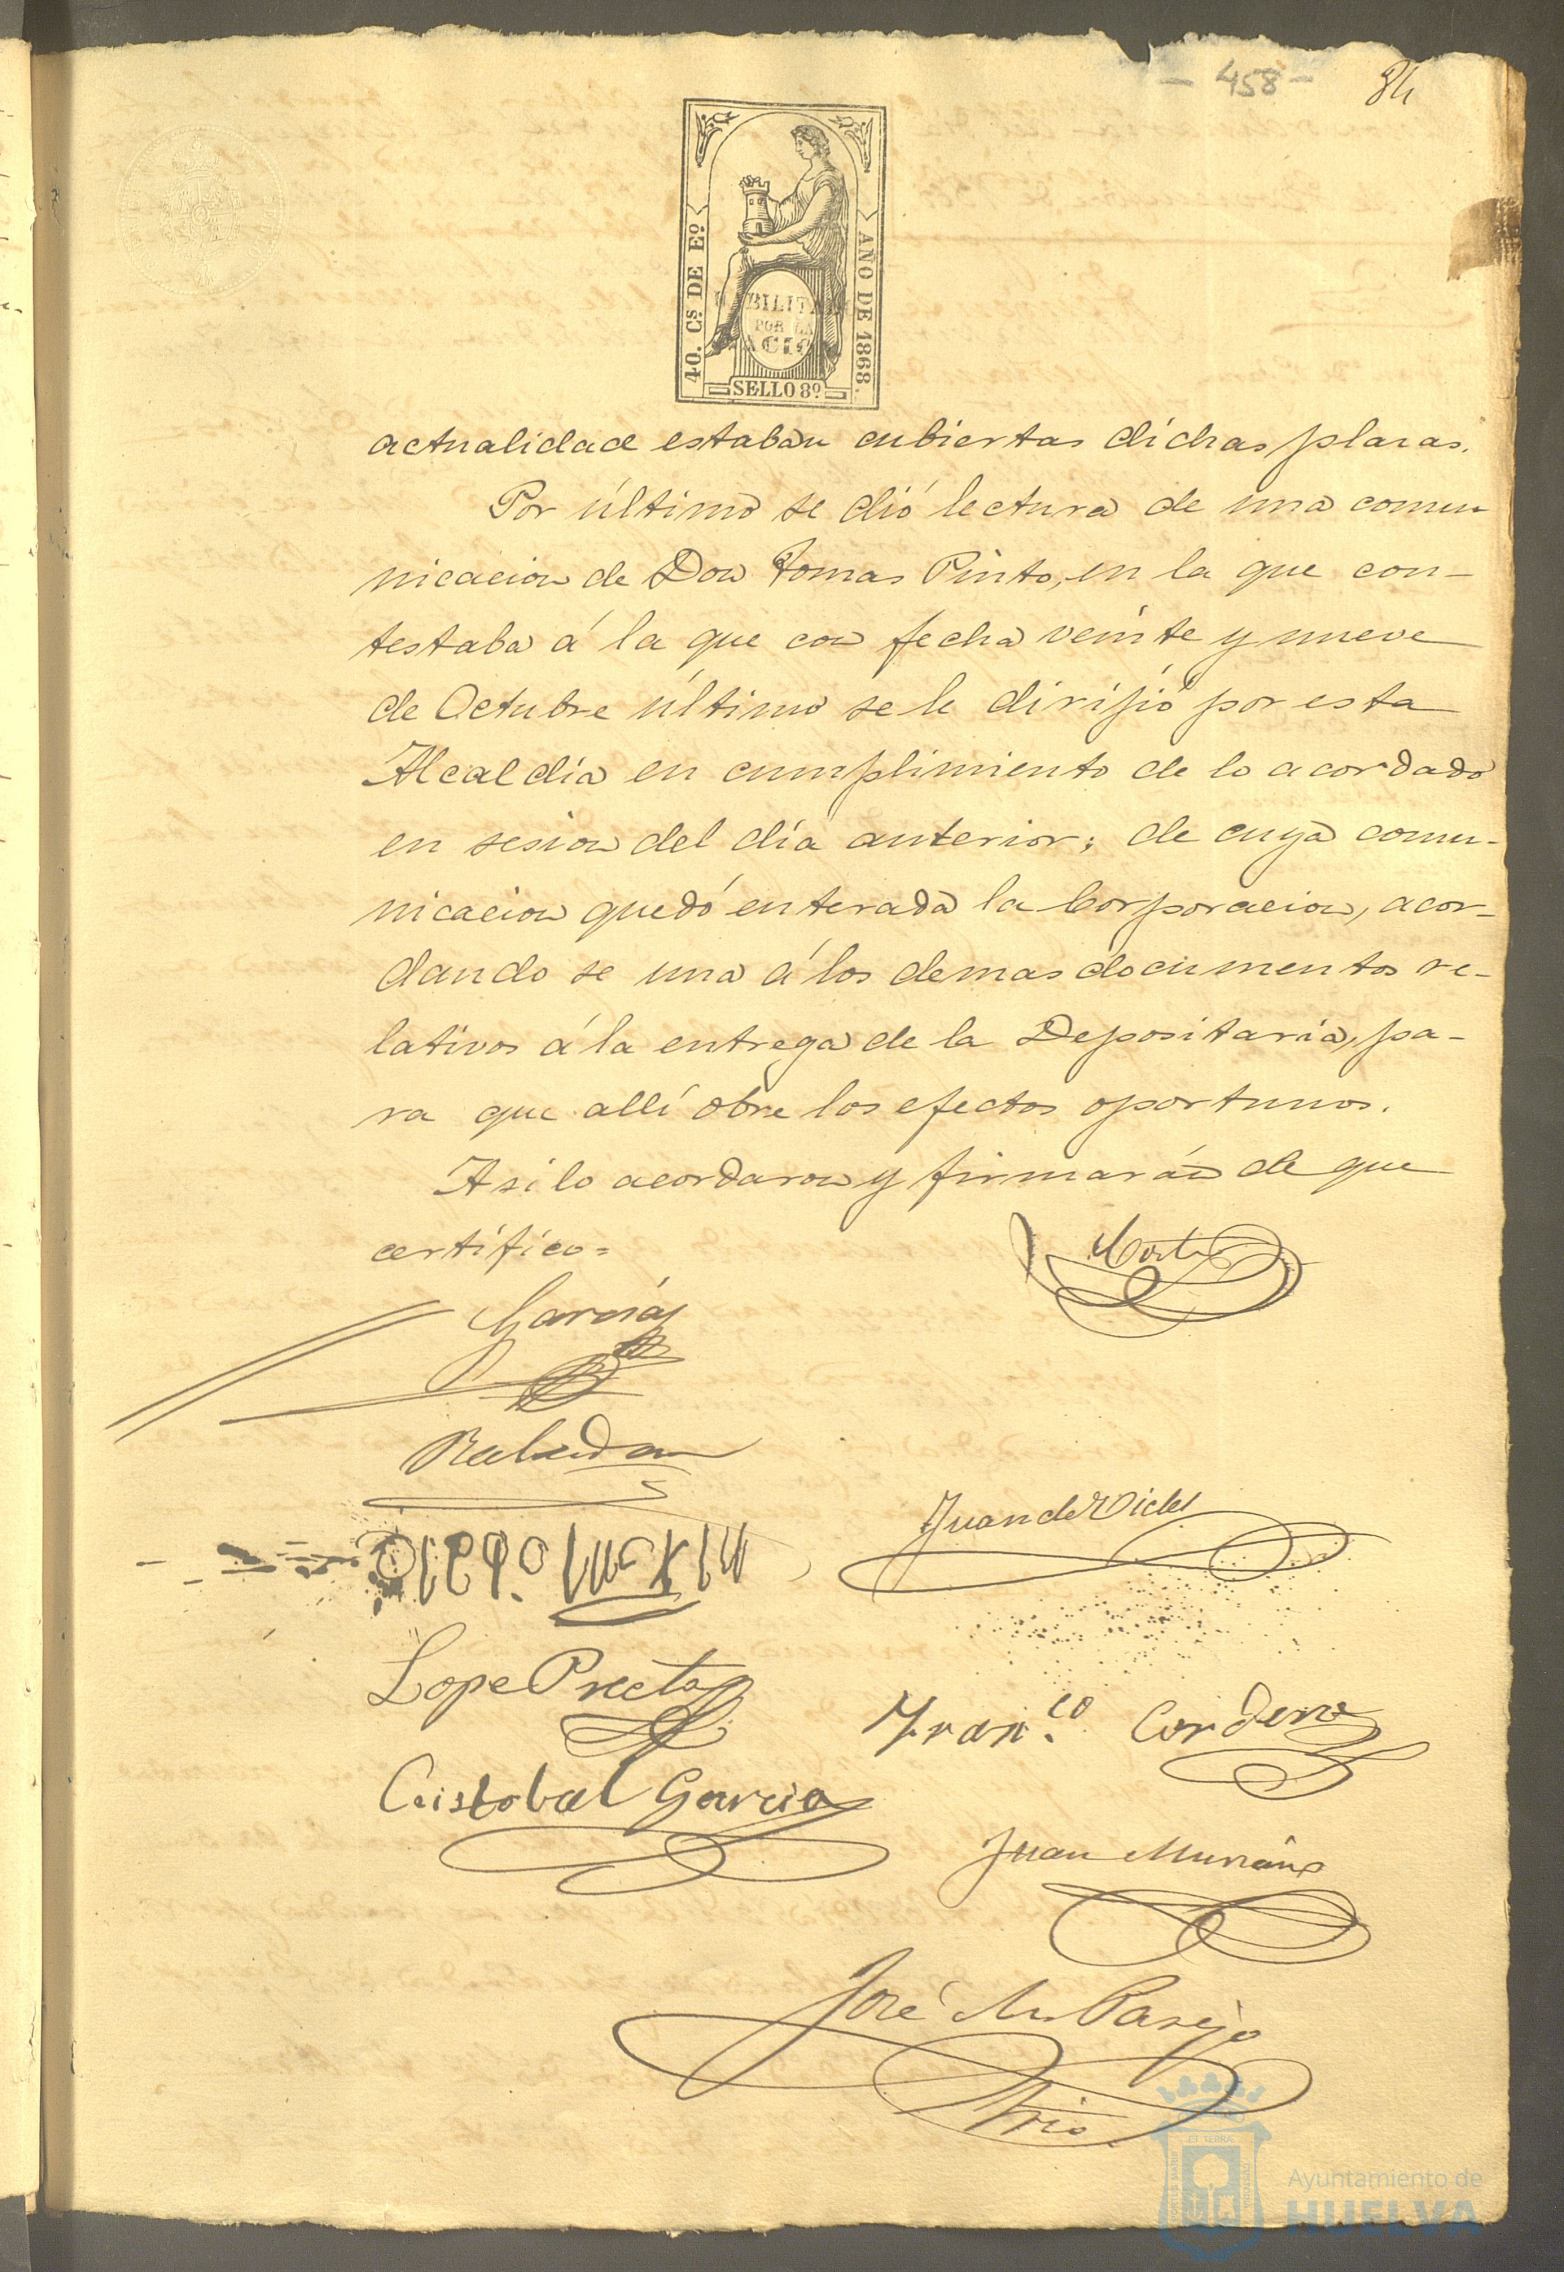 - 458 -
84
40. Cs. DE Eo.
AÑO DE 1868.
HABILITADO
POR LA
NACION
SELLO 8º
actualidad estaban cubiertas dichas plazas.
Por último se dió lectura de una comu
nicacion de Don Tomas Pinto, en la que con-
testaba á la que con fecha veinte y nueve
de Octubre último se le dirijió por esta
Alcaldía en cumplimiento de lo acordado
en sesion del día anterior; de cuya comu-
nicacion quedó enterada la Corporacion, acor-
dando se una á los demas documentos re-
lativos á la entrega de la Depositaria, pa-
ra que allí obre los efectos oportunos.
Asi lo acordaron y firmarán de que
certifico=
Garcia
Juan de Vides
Lope
Franco. Cordero
Cristobal Garcia
Juan Muriano
José M. Parejo
Srio.
Ayuntamiento de
HUELVA